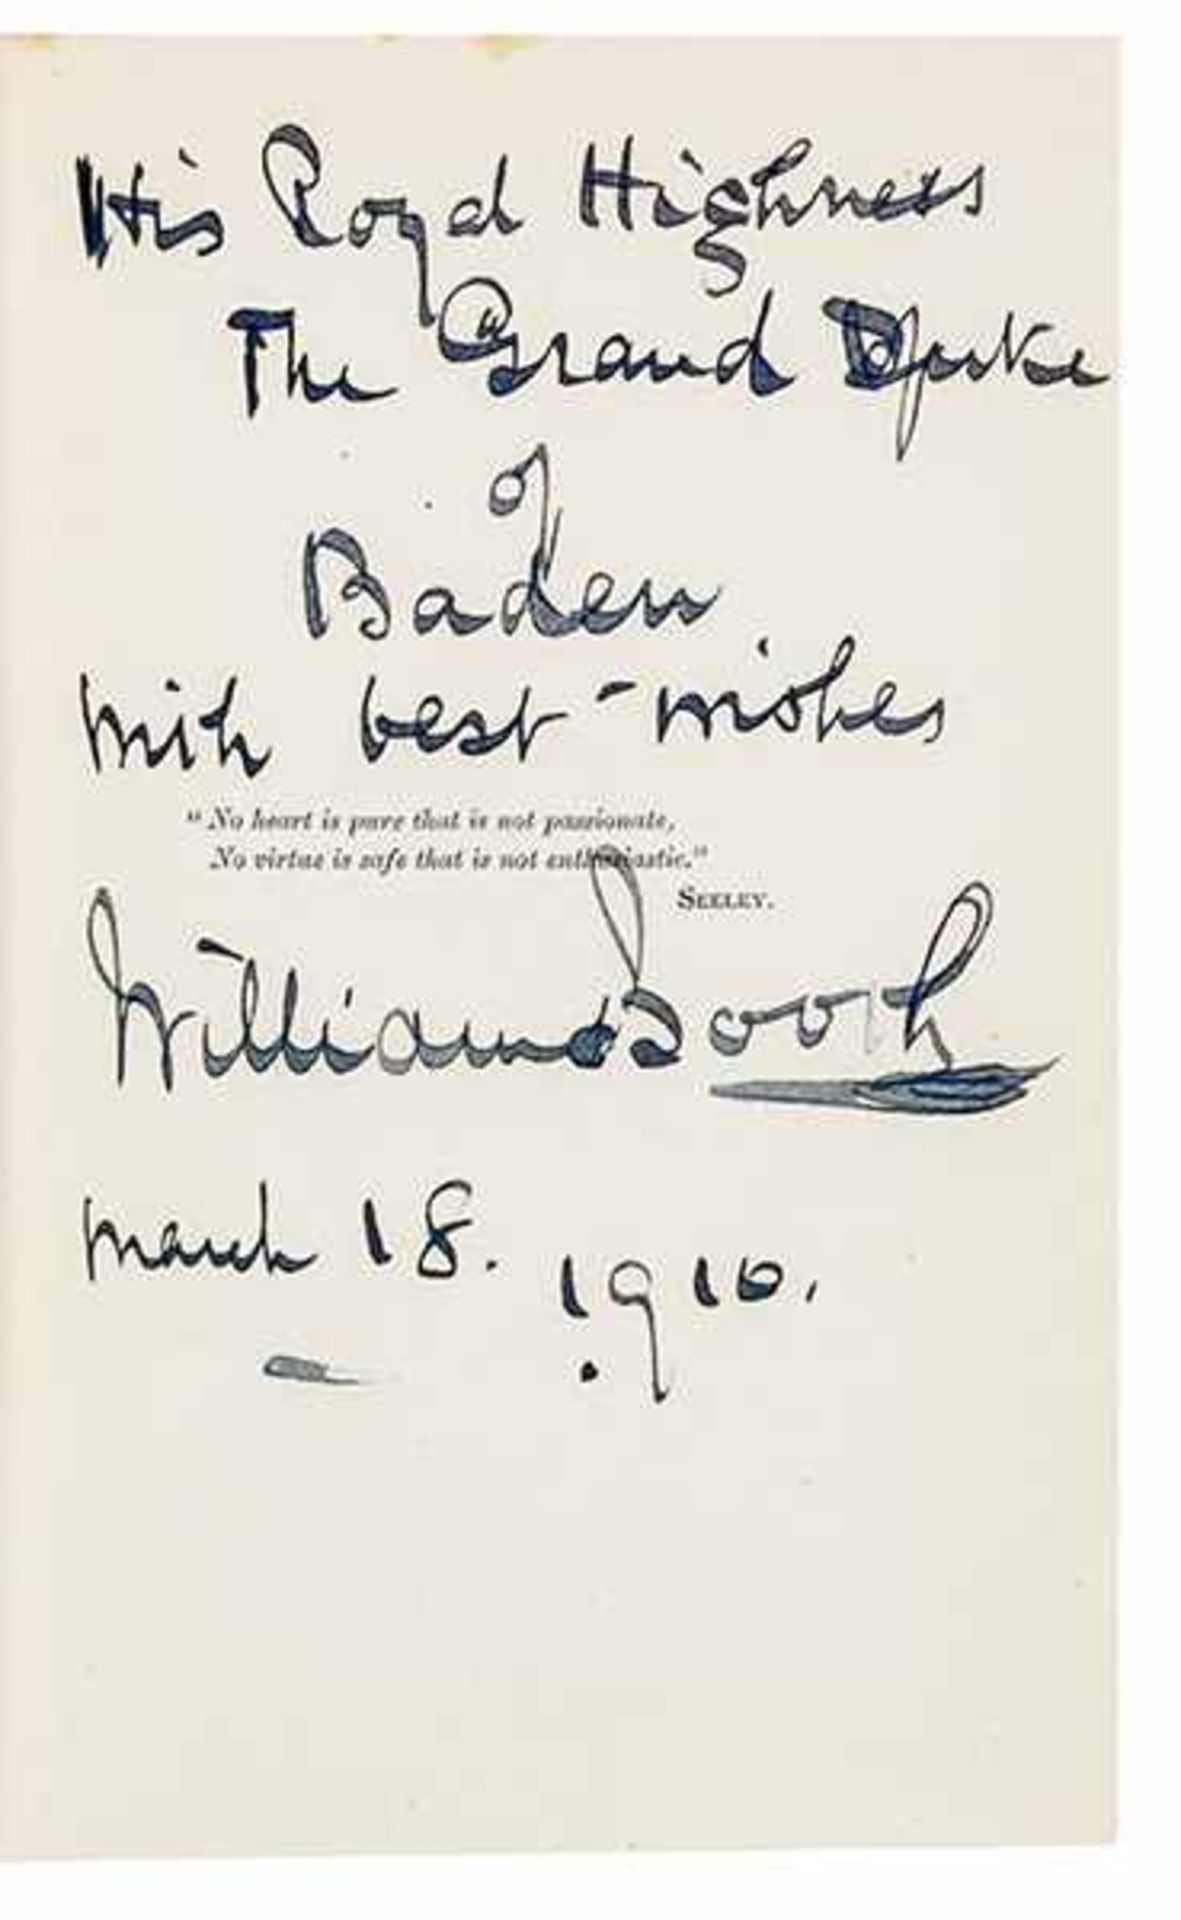 His Royal Highness
The Grand Duke
of
Baden
with best-wishes
"No heart is pure that is not passionate,
No virtue is safe that is not enthusiastic."
SEELEY.
William Booth
March 18. 1910.